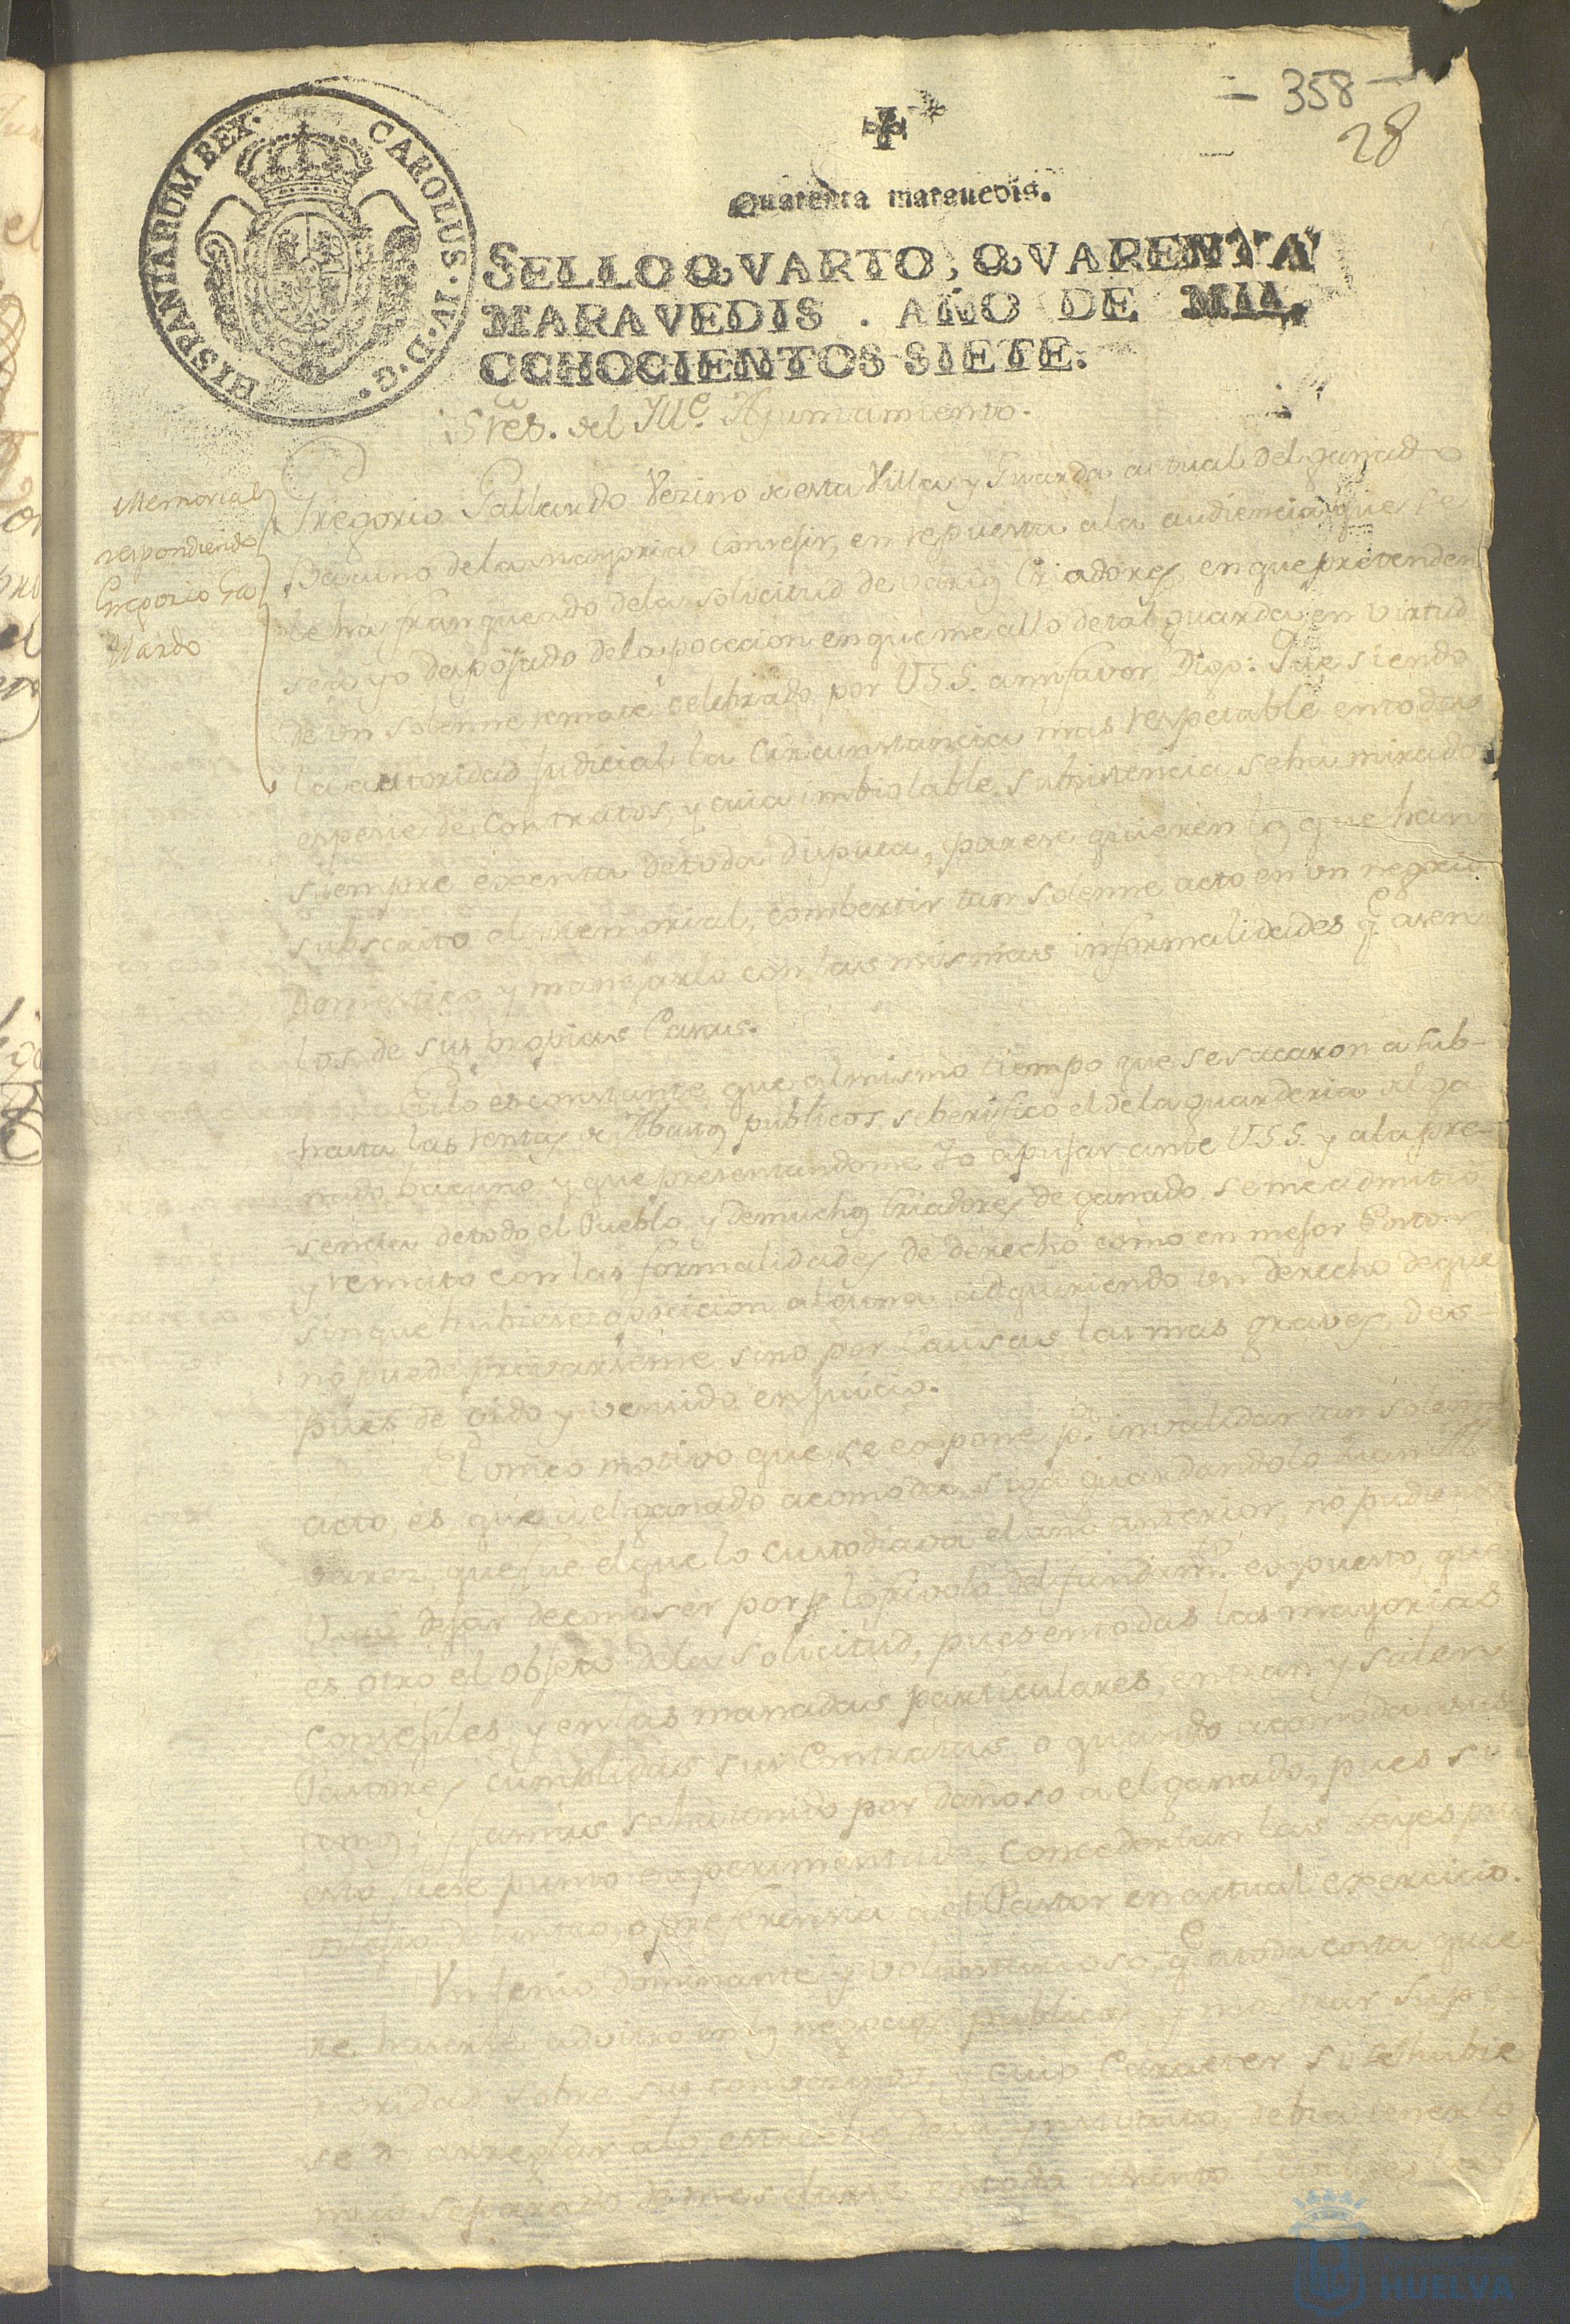 - 358 -
28
HISPANIARUM REX. CAROLUS. IV. D. G.
Quarenta maravedis.
SELLO QVARTO, QVARENTA
MARAVEDIS. AÑO DE MIL
OCHOCIENTOS SIETE.
Sres. del Ylle. Ayuntamiento.
Memorial
respondiendo
Gregorio Ga
llardo
Gregorio Gallardo Vezino de esta Villa y Guarda actual del ganado
Bacuno de la mayoria Consejir, en repuesta ala audiencia que se
le ha franqueado dela solicitud de varios Criadores, en que pretenden
sea yo desposado dela pocecion en que me allo de tal guarda en virtud
de un solenne remate celebrado por V.S.S. ami favor, Digo: Que siendo
la autoridad judicial la Circunstancia mas respetable en todas
espesie de Contratos, y cuia imbiolable subsistencia se ha mirado
siempre exsenta de toda disputa, parese quieren los que han
subscrito el Memorial, combertir tan solenne acto en un negocio
Domestico y manejarlo con las mismas informalidades qe. asen
los de sus propias Casas.
Ello es constante, que al mismo tiempo que se sacaron a sub-
hasta las rentas de Abastos publicos, se berifico el de la guarderia del ga
nado bacuno, y que presentandome Yo apujar ante V.S.S. y ala pre-
sencia de todo el Pueblo, y de muchos Criadores de ganado se me admitio
y remato con las formalidades de derecho como en mejor Postor
sin que hubiese oposicion alguna adquiriendo un derecho de que
no puede privarseme, sino por Causas las mas graves, des-
pues de oido y vensido en juicio.
El unico motivo que se expone pa. invalidar tan solenne
acto, es, que a el ganado acomoda siga guardandolo Juan Al
varez, que fue el que lo custodiava el año anterior, no pudiendo
dejar de conoser por lo frivolo del fundamto. expuesto, que
es otro el objeto dela solicitud, pues en todas las mayorias
Consejiles, y en las manadas particulares, entran y salen
Pastores cumplidas sus Contratas, o quando acomoda a sus
amos, y jamas se ha tenido por dañoso a el ganado, pues si
esto fuese punto experimentado, Concederian las Leyes pri
vilegio de tanteo, o preferensia a el Pastor en actual exercicio.
Un Jenio dominante y voluntarioso, qe. a toda costa quie
re haserse adbitro en los negocios publicos, y mostrar supe
rioridad sobre sus convezinos, y cuio Caracter si se hubie
se de arreglar alo estrecho de su ynstituto, debia tenerlo
mui separado de mesclarse en todo asunto
HUELVA